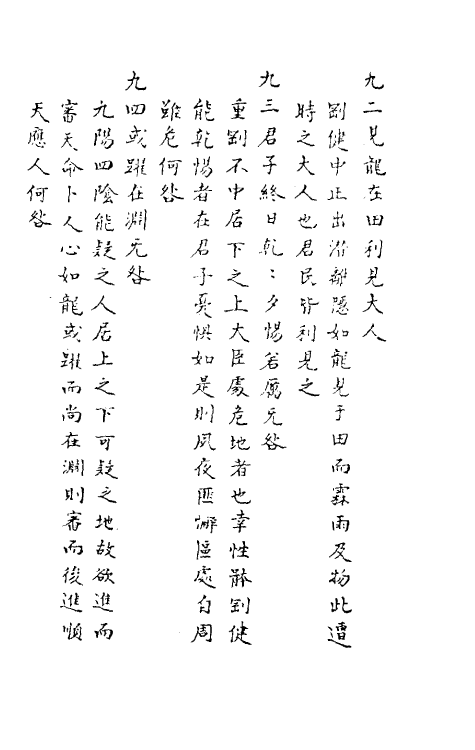 九二見龍在田利見大人
剛健中正出潛離隱如龍見于田而霖雨及物此遭
時之大人也君民皆利見之
九三君子終日乾〻夕惕若厲无咎
重剛不中居下之上大臣處危地者也幸性躰剛健
能乾惕者在君子憂惧如是則夙夜匪懈區處自周
雖危何咎
九四或躍在淵无咎
九陽四陰能疑之人居上之下可疑之地故欲進而
審天命卜人心如龍或躍而尚在淵則審而後進順
天應人何咎